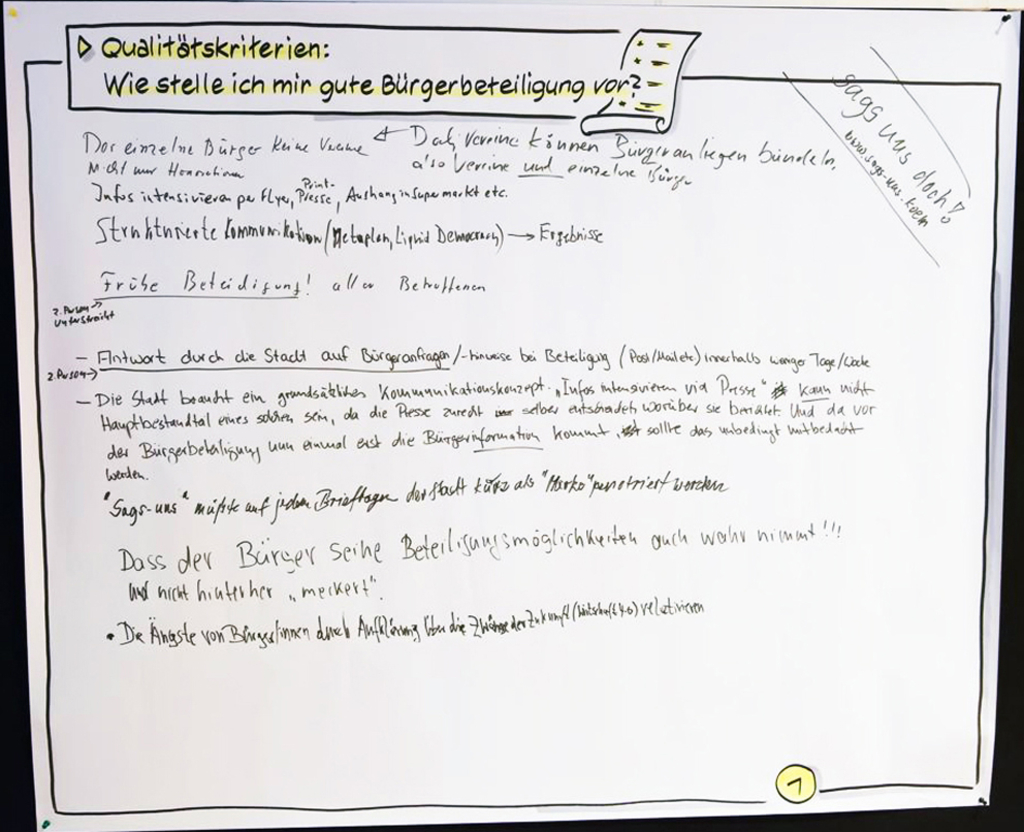 Qualitätskriterien:
Wie stelle ich mir gute Bürgerbeteiligung vor?
sags uns doch!
www.sags-uns.koeln
Der einzelne Bürger keine Vereine
Doch, Vereine können Bürgeranliegen bündeln,
also Vereine und einzelne Bürger
Nicht nur
Infos intensivieren per Flyer, Print-Presse, Aushang in Supermarkt etc.
Strukturierte Kommunikation (Metaplan, Liquid Democracy) → Ergebnisse
Frühe Beteidigung! aller Betroffenen
2. Person
unterstreicht
- Antwort durch die Stadt auf Bürgeranfragen/-hinweise bei Beteiligung (Post/Mail etc) innerhalb weniger Tage/Woche
2. Person →
- Die Stadt braucht ein grundsätzliches Kommunikationskonzept. „Infos intensivieren via Presse" kann nicht
Hauptbestandteil eines solchen sein, da die Presse zurecht selber entscheidet, worüber sie berichtet. Und da vor
der Bürgerbeteiligung nun einmal erst die Bürgerinformation kommt, sollte das unbedingt mitbedacht
werden.
"Sags-uns" müßte auf jedem der Stadt Köln als "Marke" penetriert werden
Dass der Bürger seine Beteiligungsmöglichkeiten auch wahr nimmt!!!
und nicht hinterher „meckert".
• Die Ängste von Bürger/innen durch Aufklärung über die Zwänge der Zukunft (Wirtschaft 4.0) relativieren
1